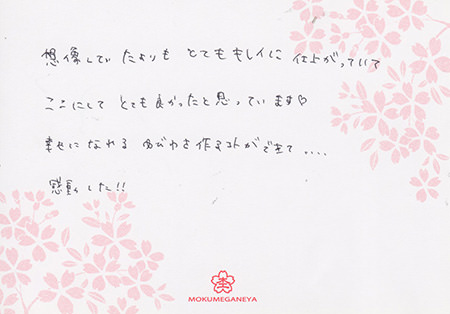 想像していたよりも とてもキレイに 仕上がっていて
ここにして とても良かったと思っています♡
幸せになれる ゆびわを作るコトができて、、、、
感動しました!!
杢
MOKUMEGANEYA